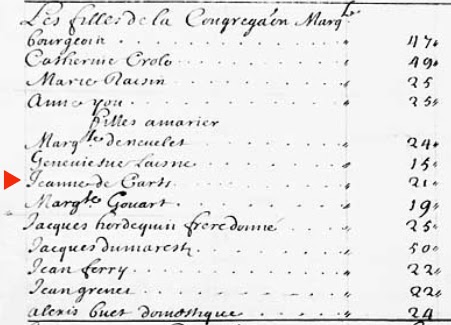 Les filles de la Congregãon Marg^te
bourgeois 47
Catherine Crolo 49
Marie Raisin 25
Anne you 25
filles amarier
Marg^te deneuelet 24
Geneuiesue Laisne 15
Jeanne de Carts 21
Marg^te Gouart 19
Jacques hordequin frere donné 25
Jacques dumarests 50
Jean ferry 22
Jean grenet 22
alexis buet domestique 24